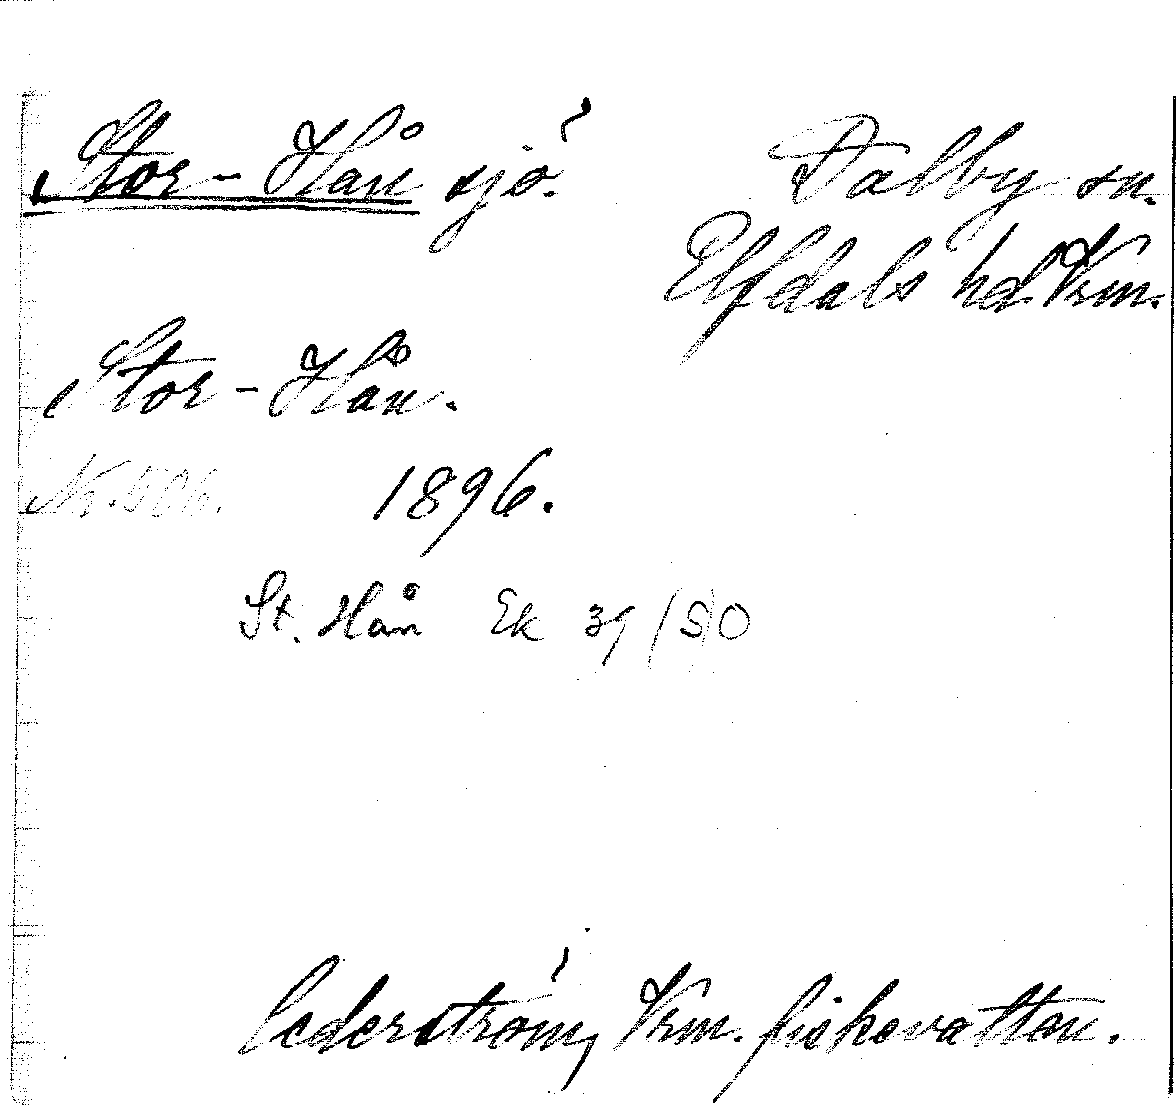 Stor-Hån sjö. Dalby sn.
Elfdals hd Vrm.
Stor-Hån.
Nr. 506. 1896.
St. Hån Ek 39/50
Cederström, Vrm. fiskevatten.